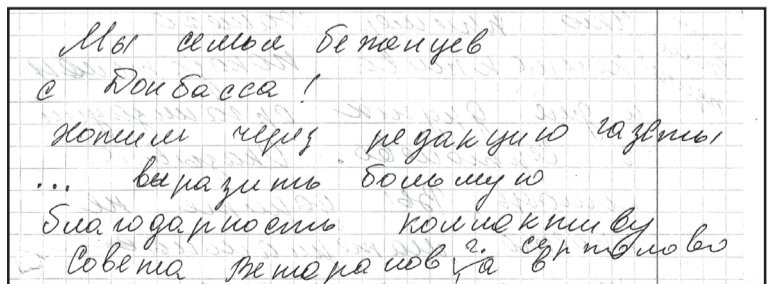 Мы семья беженцев
с Донбасса!
хотим через редакцию газеты
... выразить большую
благодарность коллективу
Совета Ветеранов г. Сертолово